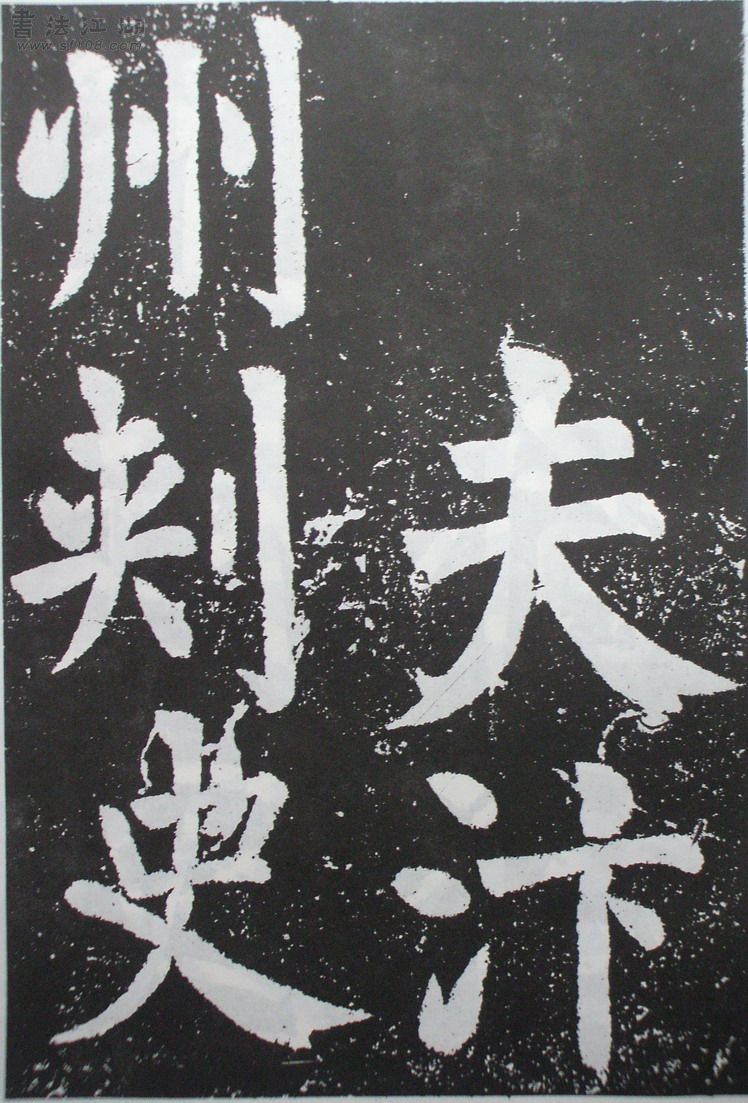 夫汴
州刺史
書法江湖
www.sf108.com